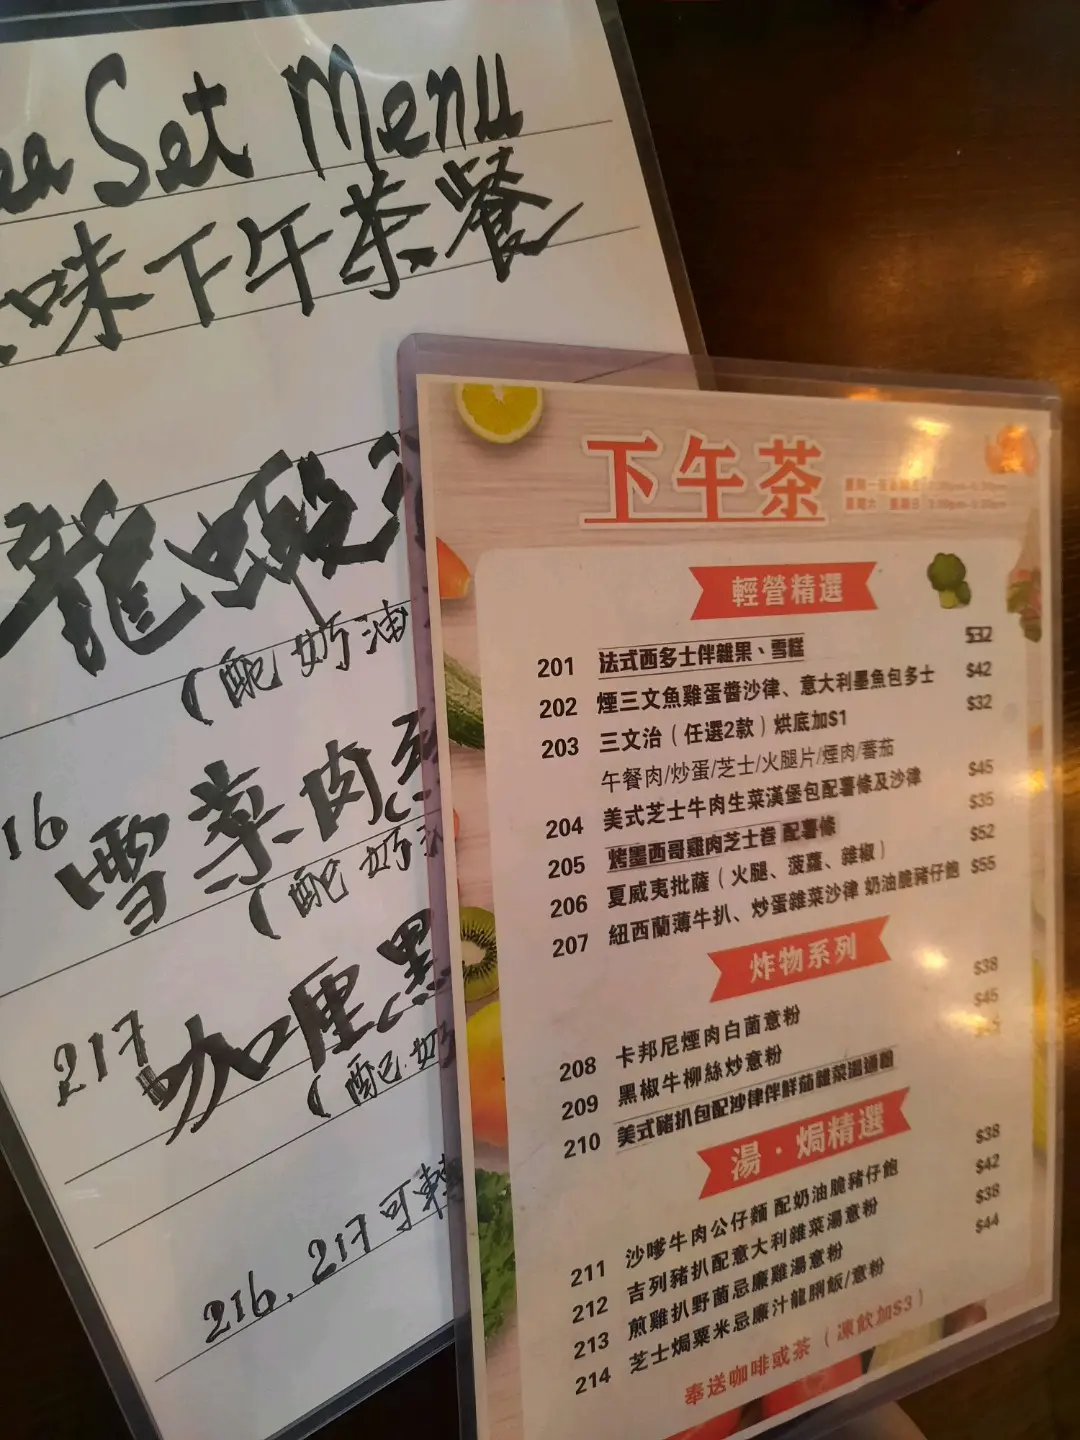 Set Menu
味下午茶餐
龍蝦
(配奶油
16 雪菜肉
(配奶
217 咖喱
(配奶
216. 217可轉
下午茶
輕營精選
201 法式西多士伴雜果、雪糕 $32
202 煙三文魚雞蛋醬沙律、意大利墨魚包多士 $42
203 三文治（任選2款）烘底加$1 $32
午餐肉/炒蛋/芝士/火腿片/煙肉/蕃茄
204 美式芝士牛肉生菜漢堡包配薯條及沙律 $45
205 烤墨西哥雞肉芝士卷 配薯條 $35
206 夏威夷批薩（火腿、菠蘿、雜椒） $52
207 紐西蘭薄牛扒、炒蛋雜菜沙律 奶油脆豬仔飽 $55
炸物系列
208 卡邦尼煙肉白菌意粉 $38
209 黑椒牛柳絲炒意粉 $45
210 美式豬扒包配沙律伴鮮茄雜菜湯通粉
湯・焗精選
211 沙嗲牛肉公仔麵 配奶油脆豬仔飽 $38
212 吉列豬扒配意大利雜菜湯意粉 $42
213 煎雞扒野菌忌廉雞湯意粉 $38
214 芝士焗粟米忌廉汁龍脷飯/意粉 $44
奉送咖啡或茶（凍飲加$3）